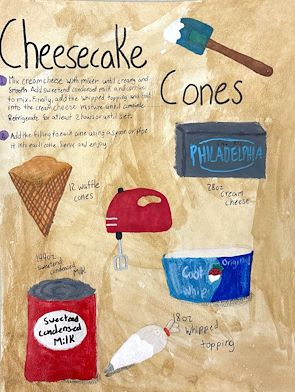 Cheesecake
Cones
1. Mix cream cheese with mixer until creamy and
smooth. Add sweetend condensed milk and continue
to mix. Finally, add the whipped topping and fold
into the cream cheese mixture until combine.
Refrigerate for atleast 2 hours or until set.
2. Add the filling to each cone using a spoon or pipe
it into each cone. Serve and enjoy.
PHILADELPHIA
28oz
cream
cheese
12 waffle
cones
14oz
sweetend
condensed
Milk
Sweetend
Condensed
Milk
Original
Cool
Whip
18oz
whipped
topping